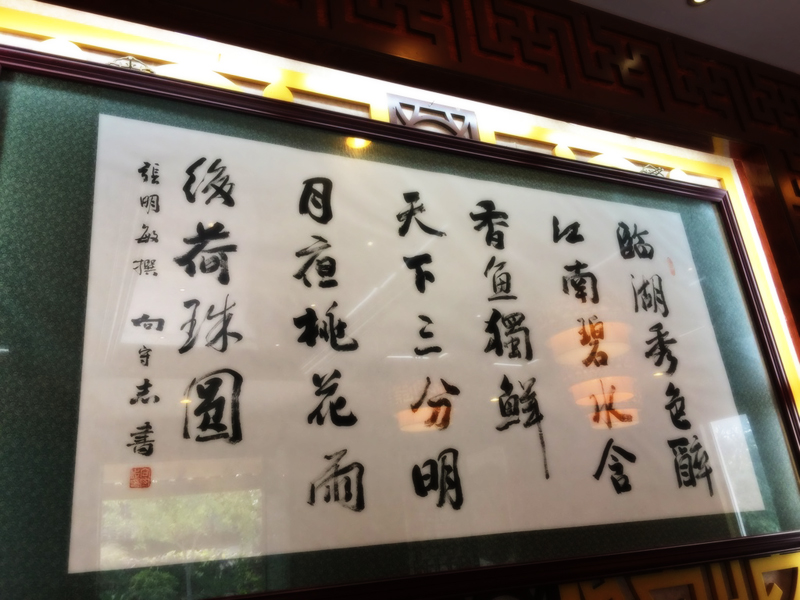 臨湖秀色醉
江南碧水含
香魚獨鮮
天下三分明
月夜桃花雨
後荷珠圓
張明敏撰 向守志書